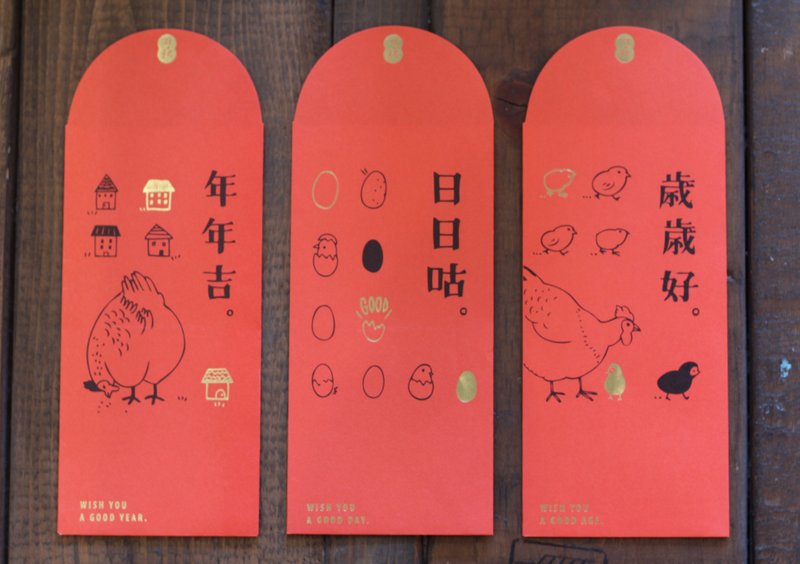 年年吉。
WISH YOU
A GOOD YEAR.
日日咕。
GOOD
WISH YOU
A GOOD DAY.
歲歲好。
WISH YOU
A GOOD AGE.